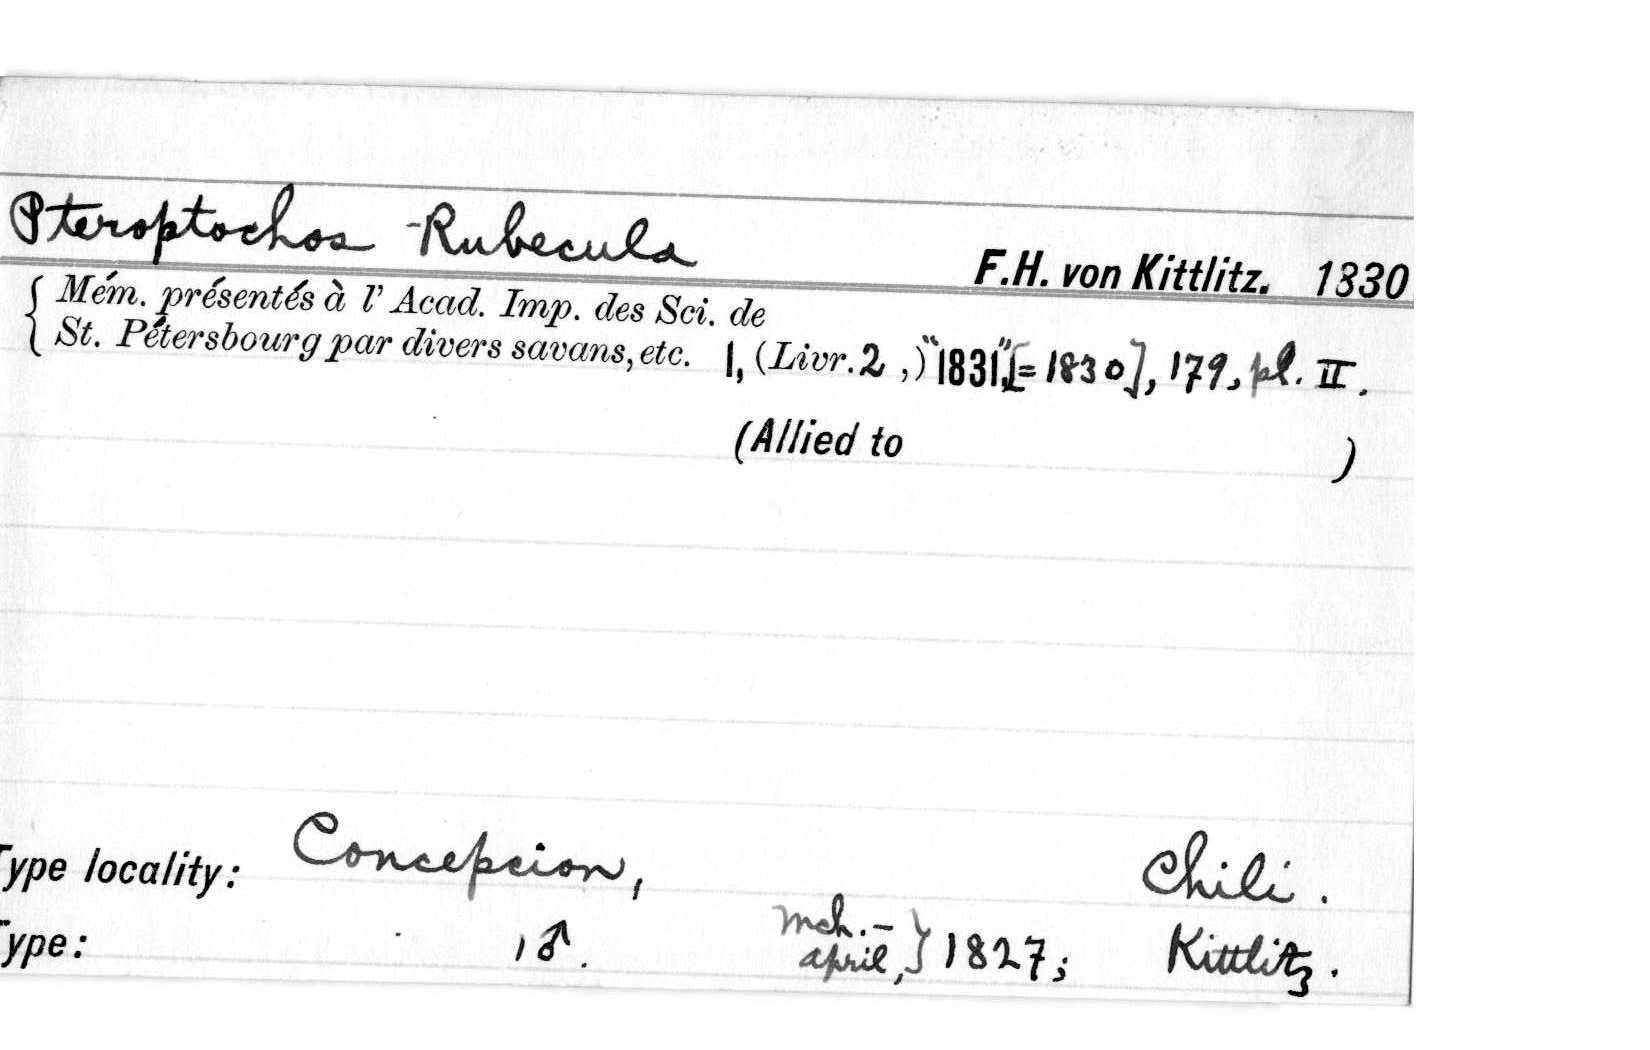 Pteroptochos Rubecula
F.H. von Kittlitz. 1830
Mém. présentés à l' Acad. Imp. des Sci. de
St. Pétersbourg par divers savans, etc. I, (Livr. 2 ,) "1831", [= 1830], 179, pl. II.
(Allied to )
Type locality: Concepcion, Chili.
Type: 1 ♂. Mch. –
april, } 1827; Kittlitz.